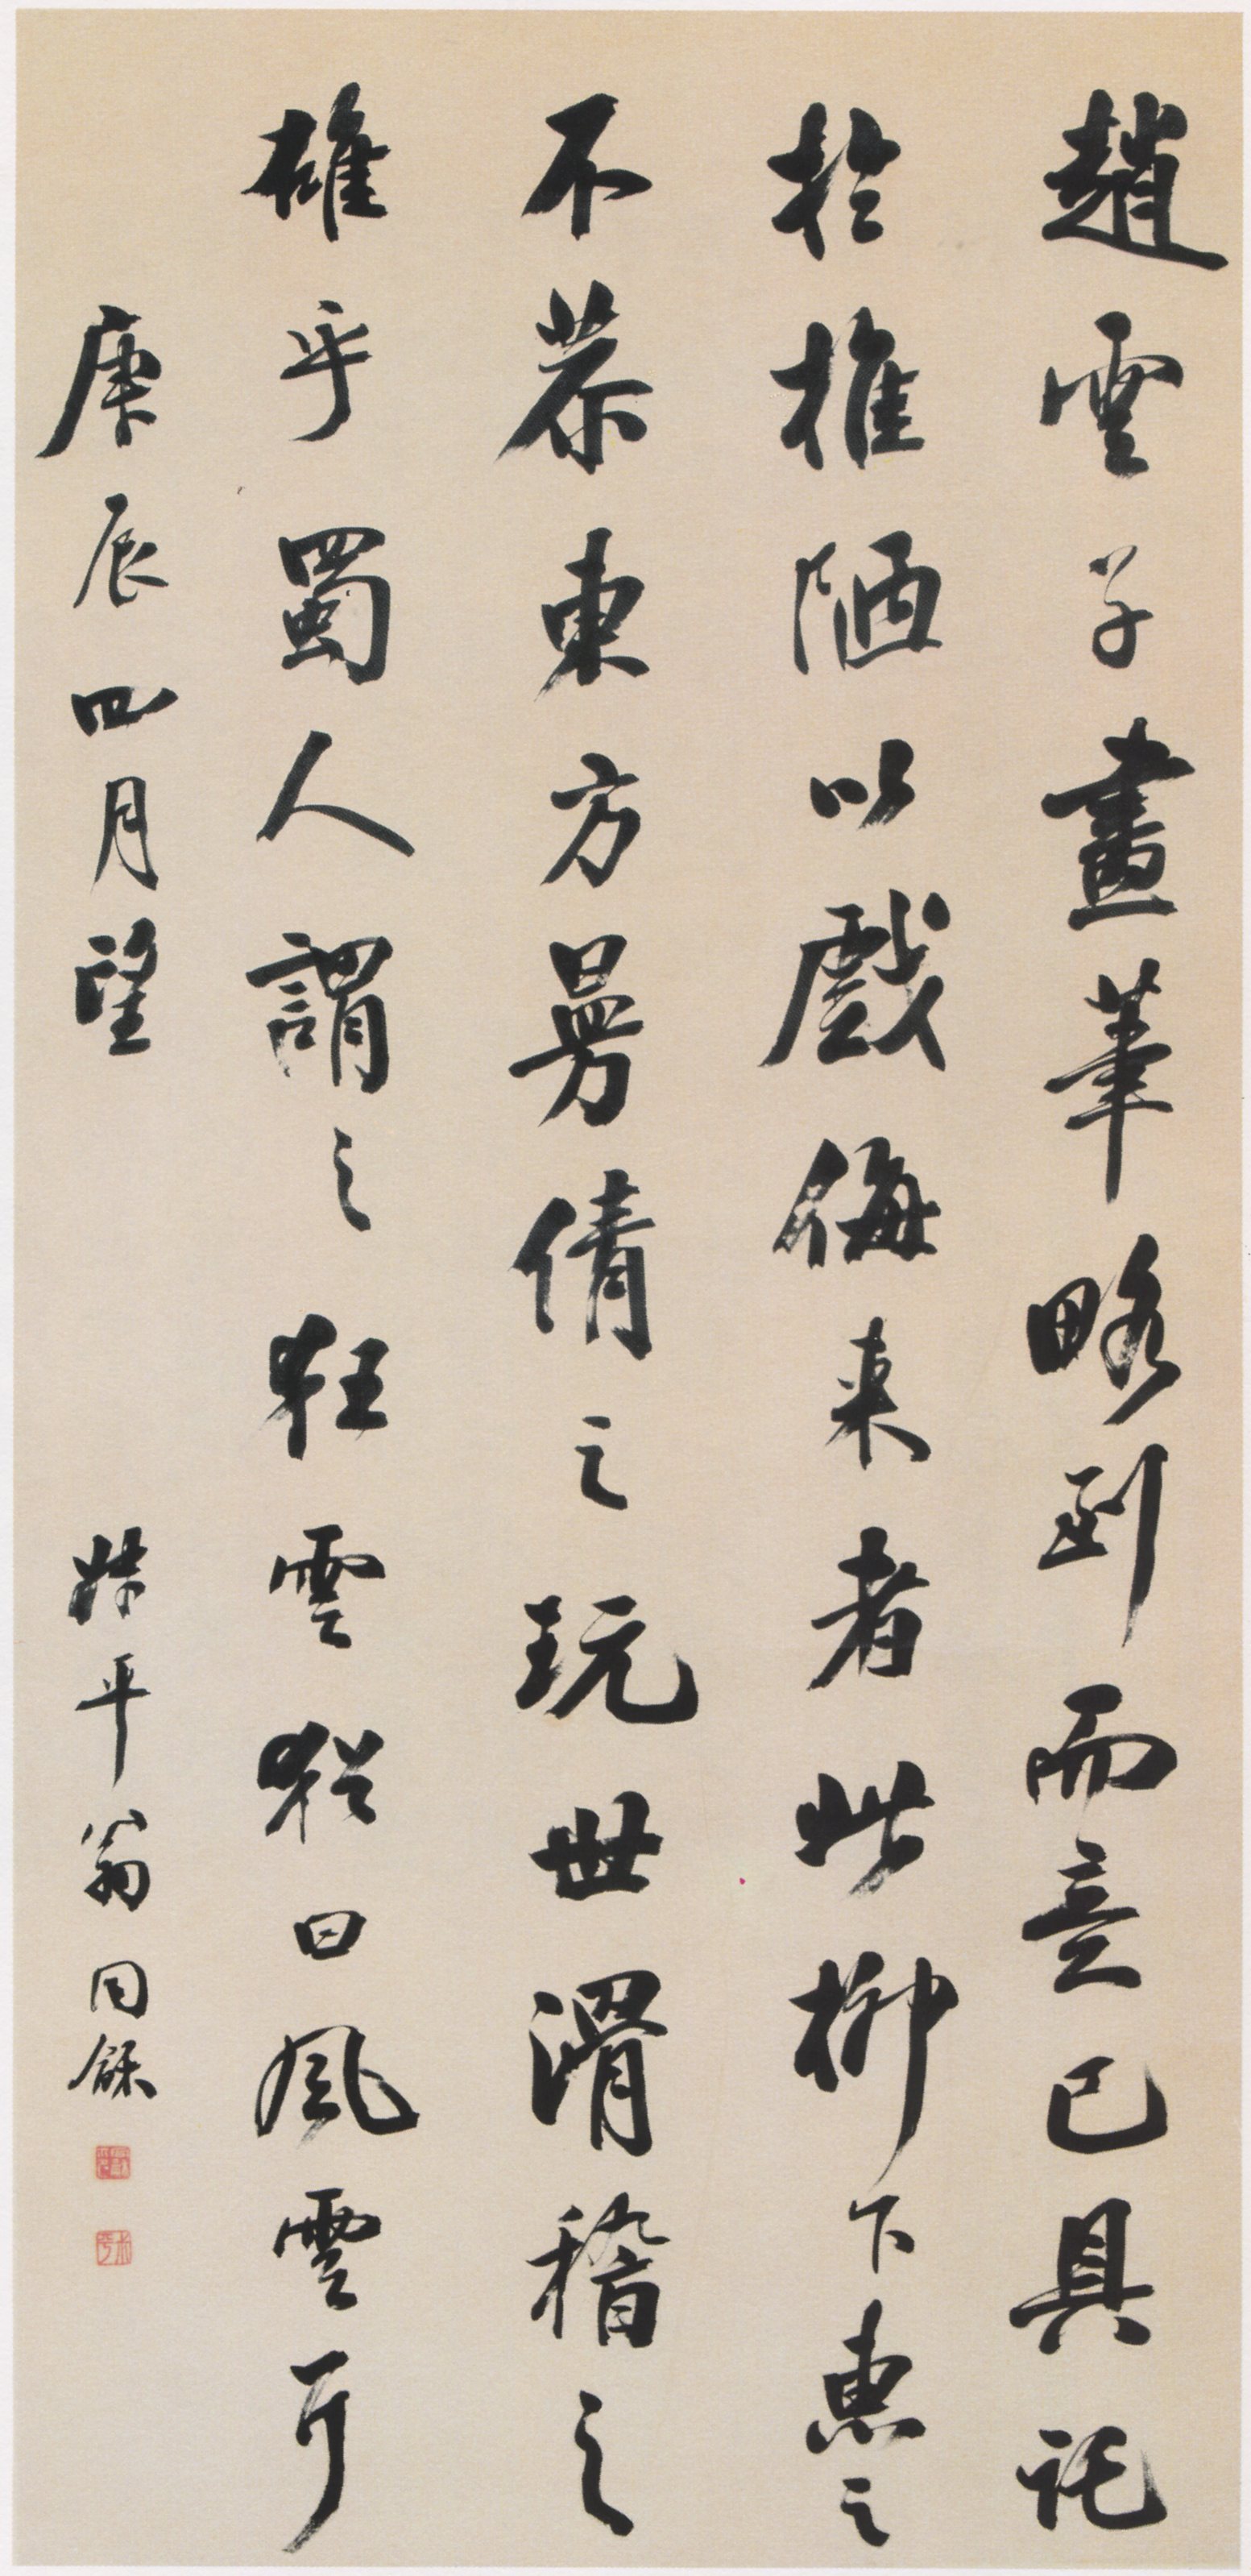 趙雲子畫筆略到而意已具託
於椎陋以戲侮來者此柳下惠之
不恭東方曼倩之玩世滑稽之
雄乎蜀人謂之狂雲猶曰風雲耳
庚辰四月望 叔平翁同龢